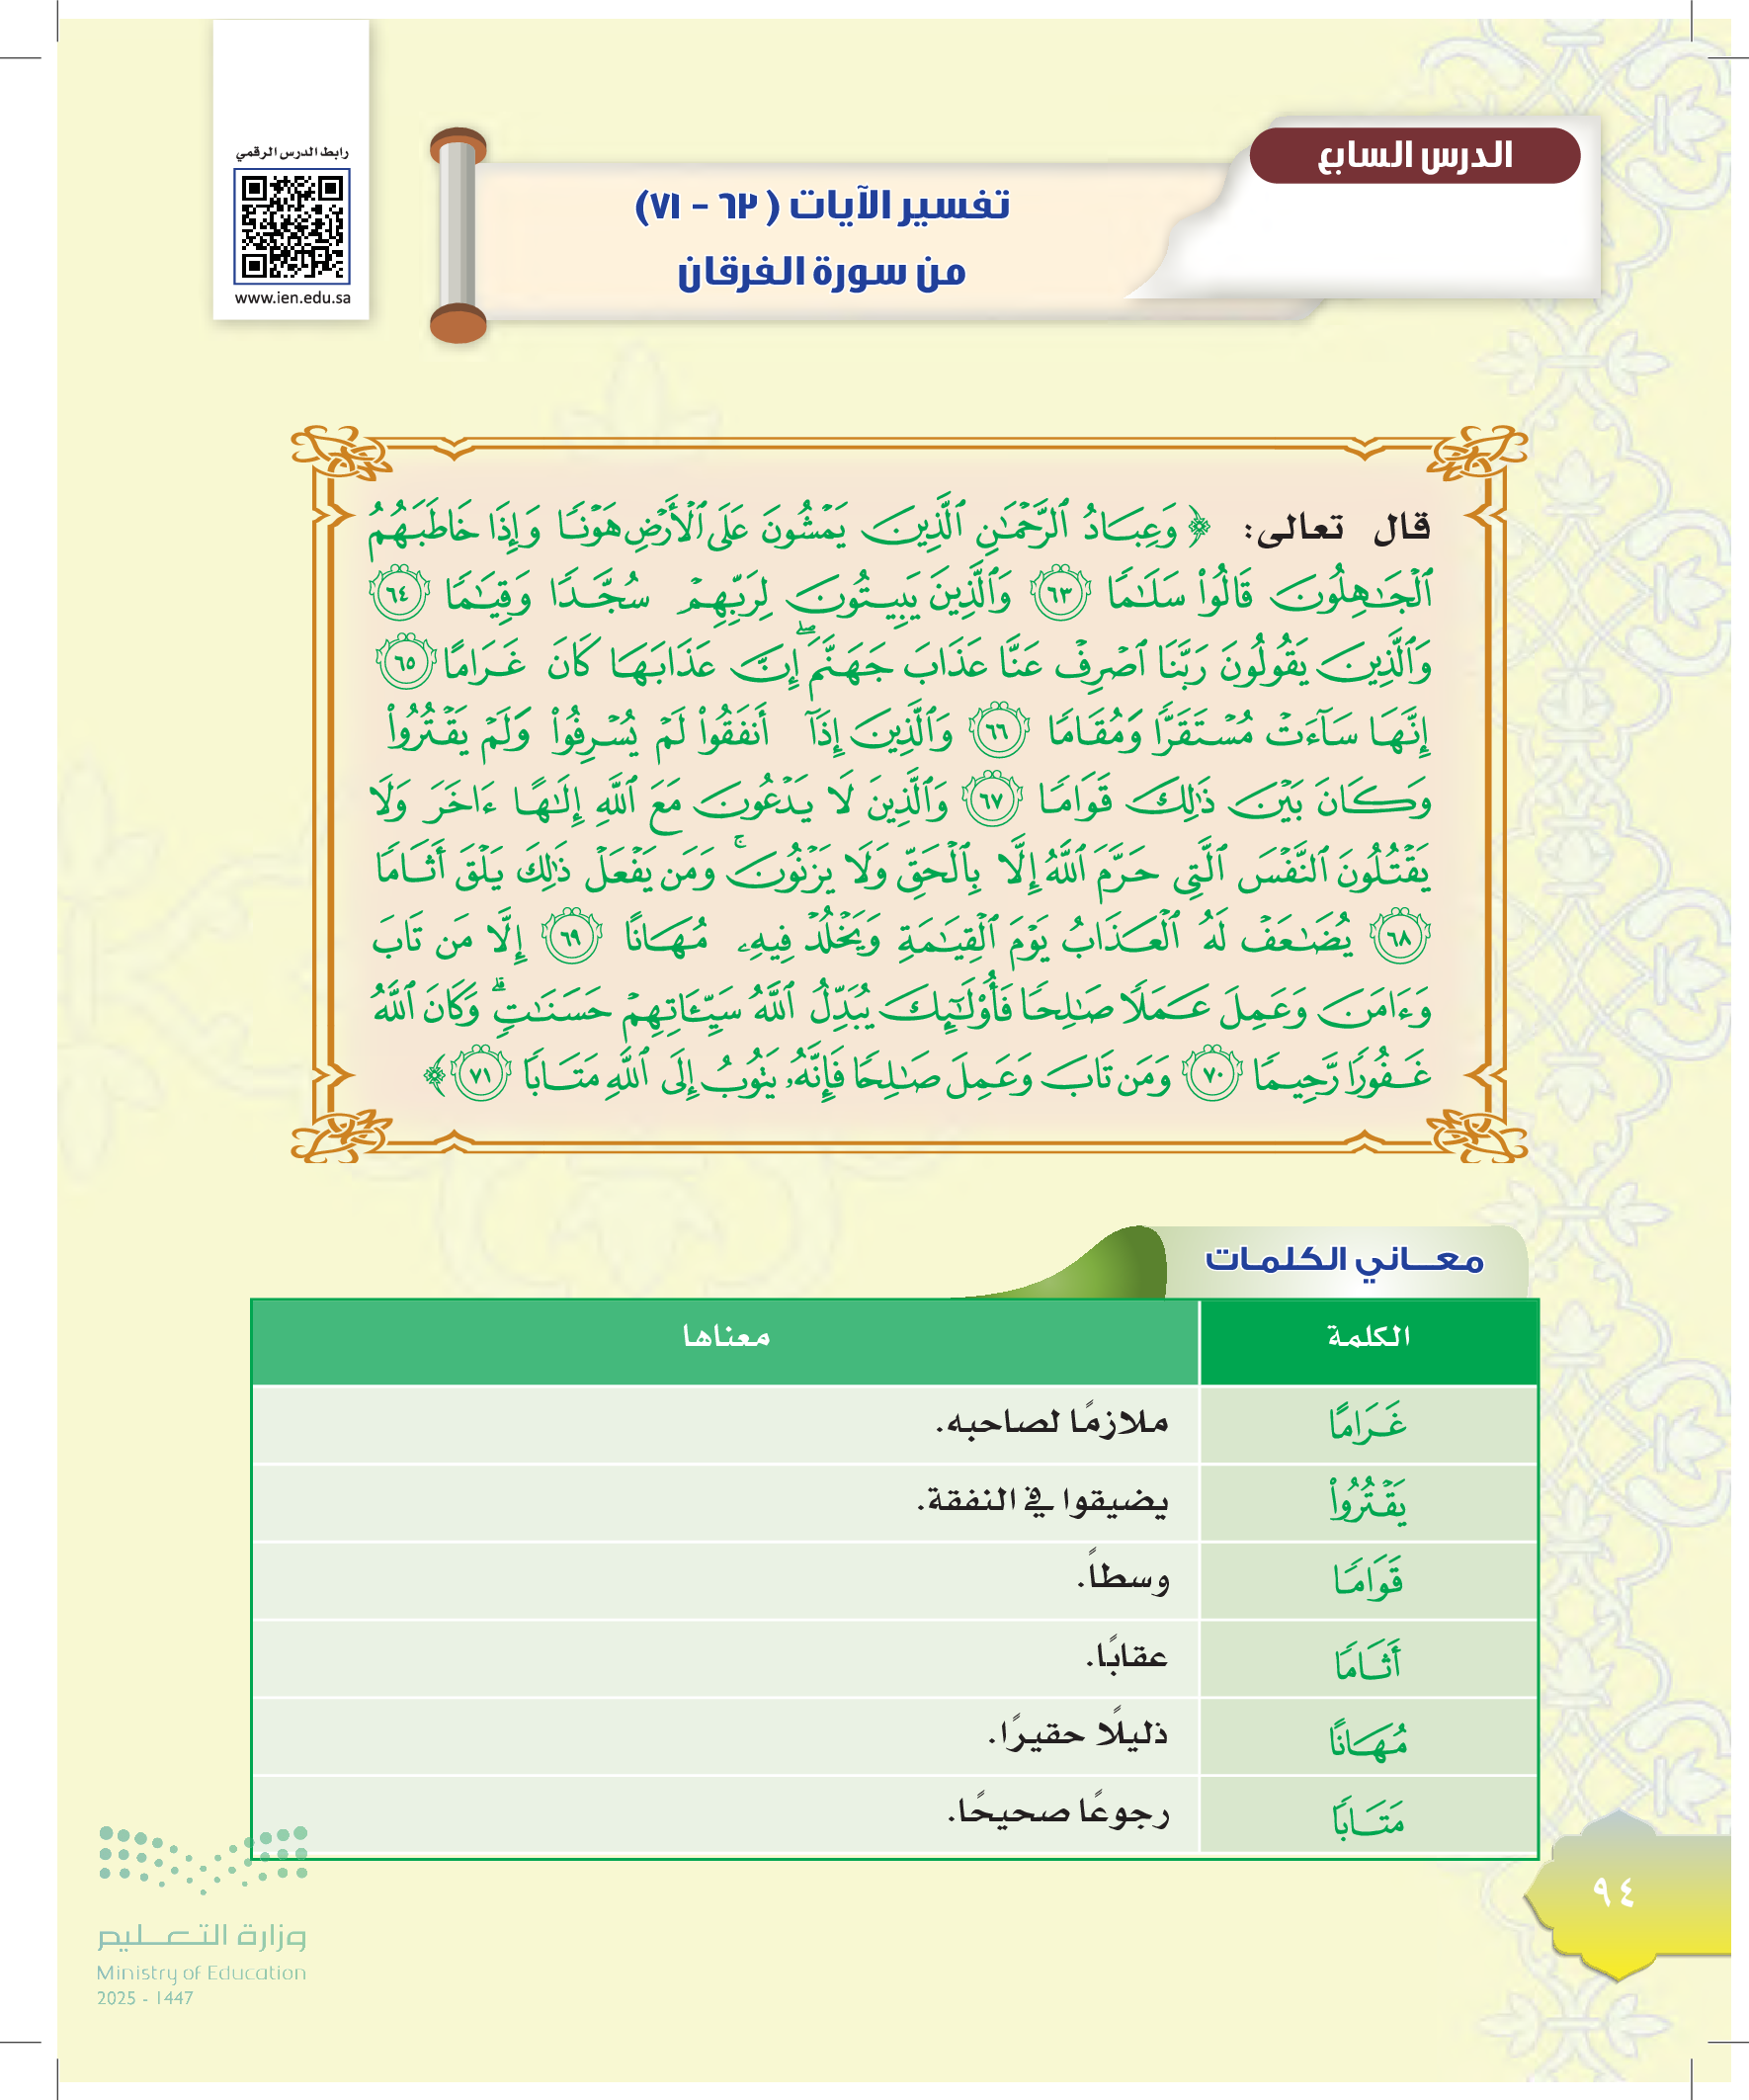 رابط الدرس الرقمي
www.ien.edu.sa
الدرس السابع
تفسير الآيات (٦٣ - ٧١)
من سورة الفرقان
قال تعالى: ﴿ وَعِبَادُ ٱلرَّحْمَٰنِ ٱلَّذِينَ يَمْشُونَ عَلَى ٱلْأَرْضِ هَوْنًا وَإِذَا خَاطَبَهُمُ
ٱلْجَٰهِلُونَ قَالُوا۟ سَلَٰمًا ٦٣ وَٱلَّذِينَ يَبِيتُونَ لِرَبِّهِمْ سُجَّدًا وَقِيَٰمًا ٦٤
وَٱلَّذِينَ يَقُولُونَ رَبَّنَا ٱصْرِفْ عَنَّا عَذَابَ جَهَنَّمَ ۖ إِنَّ عَذَابَهَا كَانَ غَرَامًا ٦٥
إِنَّهَا سَآءَتْ مُسْتَقَرًّا وَمُقَامًا ٦٦ وَٱلَّذِينَ إِذَآ أَنفَقُوا۟ لَمْ يُسْرِفُوا۟ وَلَمْ يَقْتُرُوا۟
وَكَانَ بَيْنَ ذَٰلِكَ قَوَامًا ٦٧ وَٱلَّذِينَ لَا يَدْعُونَ مَعَ ٱللَّهِ إِلَٰهًا ءَاخَرَ وَلَا
يَقْتُلُونَ ٱلنَّفْسَ ٱلَّتِى حَرَّمَ ٱللَّهُ إِلَّا بِٱلْحَقِّ وَلَا يَزْنُونَ ۚ وَمَن يَفْعَلْ ذَٰلِكَ يَلْقَ أَثَامًا
٦٨ يُضَٰعَفْ لَهُ ٱلْعَذَابُ يَوْمَ ٱلْقِيَٰمَةِ وَيَخْلُدْ فِيهِۦ مُهَانًا ٦٩ إِلَّا مَن تَابَ
وَءَامَنَ وَعَمِلَ عَمَلًا صَٰلِحًا فَأُو۟لَٰٓئِكَ يُبَدِّلُ ٱللَّهُ سَيِّـَٔاتِهِمْ حَسَنَٰتٍ ۗ وَكَانَ ٱللَّهُ
غَفُورًا رَّحِيمًا ٧٠ وَمَن تَابَ وَعَمِلَ صَٰلِحًا فَإِنَّهُۥ يَتُوبُ إِلَى ٱللَّهِ مَتَابًا ٧١ ﴾
معاني الكلمات
الكلمة معناها
غَرَامًا ملازمًا لصاحبه.
يَقْتُرُوا۟ يضيقوا في النفقة.
قَوَامًا وسطاً.
أَثَامًا عقابًا.
مُهَانًا ذليلًا حقيرًا.
مَتَابًا رجوعًا صحيحًا.
٩٤
وزارة التعليم
Ministry of Education
2025 - 1447